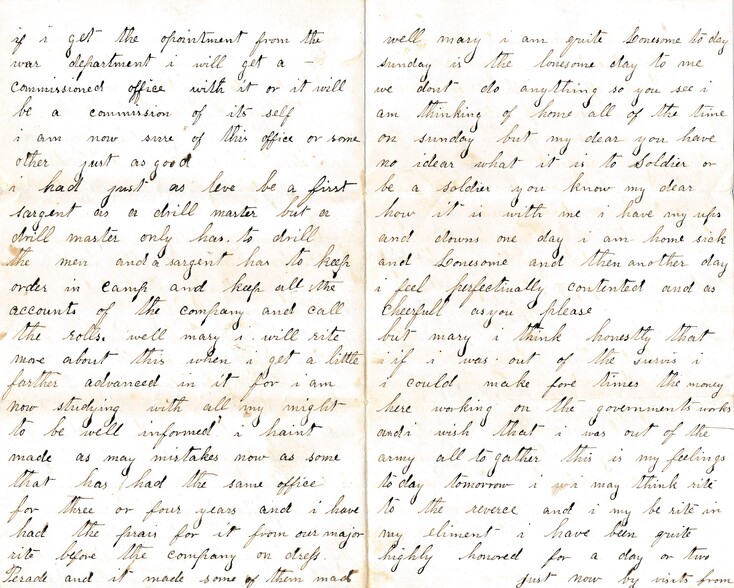 if i get the opointment from the
war department i will get a -
commissioned office with it or it will
be a commission of its self
i am now sure of this office or some
other just as good
i had just as leve be a first
sargent as a drill master but a
drill master only has. to drill
the men and a sargent has to keep
order in camp and keep all the
accounts of the company and call
the rolls. well mary i will rite
more about this when i get a little
farther advanced in it for i am
now studying with all my might
to be well informed i haint
made as may mistakes now as some
that has had the same office
for three or four years and i have
had the prais for it from our major
rite before the company on dress
Perade and it made some of them mad
well mary i am quite Lonesome to day
sunday is the lonesome day to me
we dont do anything so you see i
am thinking of home all of the time
on sunday but my dear you have
no idear what it is to Soldier or
be a soldier you know my dear
how it is with me i have my ups
and downs one day i am home sick
and Lonesome and then another day
i feel perfectually contented and as
cheerfull as you please
but mary i think honestly that
i if i was out of the survis i
i could make fore times the money
here working on the governments works
and i wish that i was out of the
army all to gather this is my feelings
to day tomorrow i may think rite
to the reverce and i my be rite in
my eliment i have been quite
highly honored for a day or two
just now by visits from